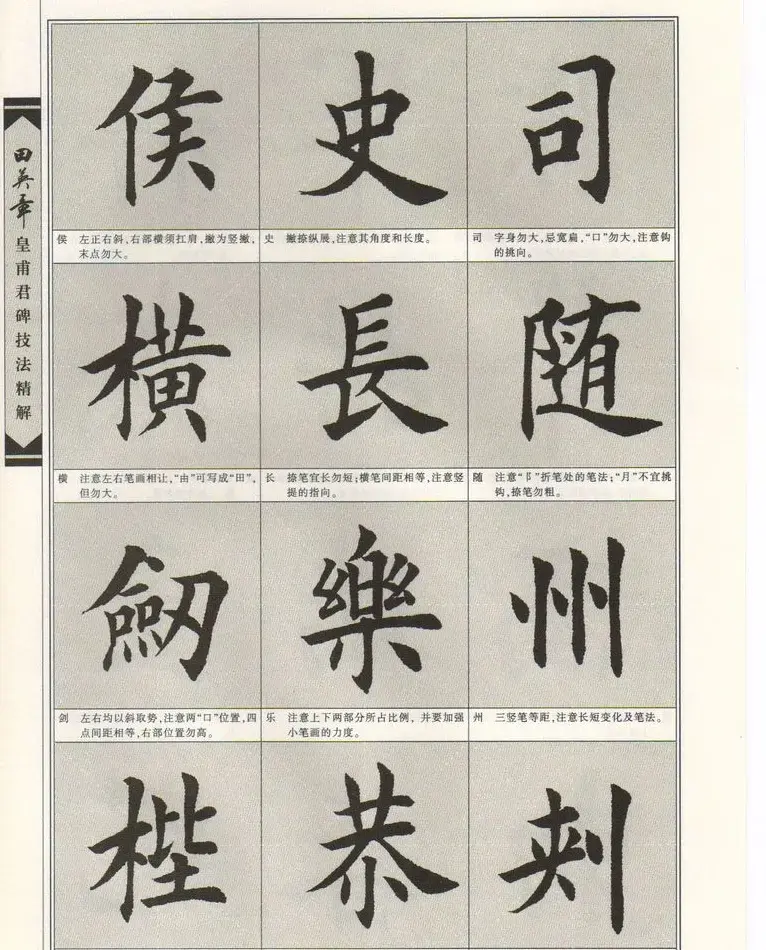 田英章
皇甫君碑技法精解
侯 史 司
侯 左正右斜，右部横须扛肩，撇为竖撇，
末点勿大。
史 撇捺纵展，注意其角度和长度。
司 字身勿大，忌宽扁，“口”勿大，注意钩
的挑向。
横 長 随
横 注意左右笔画相让，“由”可写成“田”，
但勿大。
长 捺笔宜长勿短；横笔间距相等，注意竖
提的指向。
随 注意“阝”折笔处的笔法；“月”不宜挑
钩，捺笔勿粗。
劒 樂 州
剑 左右均以斜取势，注意两“口”位置，四
点间距相等，右部位置勿高。
乐 注意上下两部分所占比例，并要加强
小笔画的力度。
州 三竖笔等距，注意长短变化及笔法。
梐 恭 刾